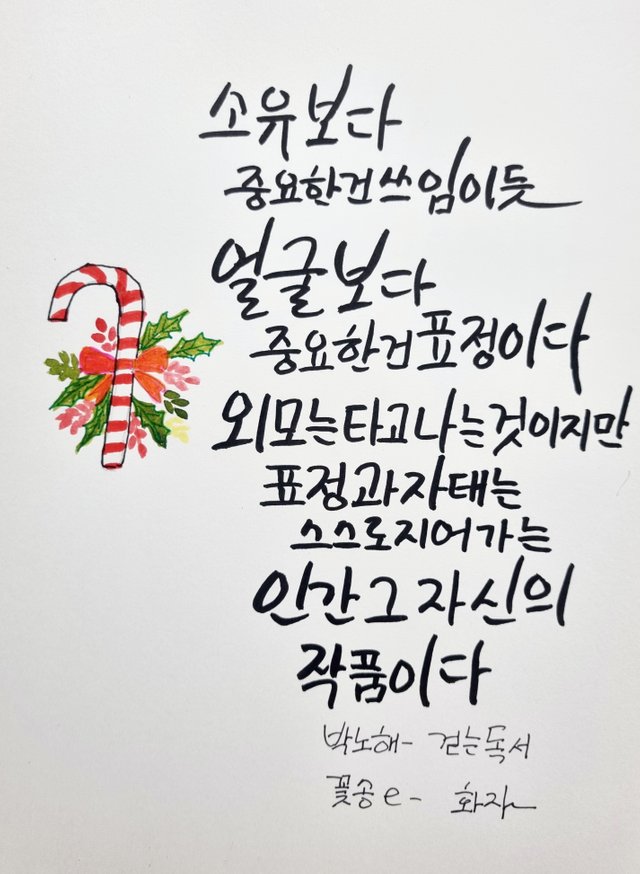 소유보다
중요한건 쓰임이듯
얼굴보다
중요한건 표정이다
외모는 타고나는 것이지만
표정과 자태는
스스로 지어가는
인간 그 자신의
작품이다
박노해- 걷는독서
꽃송e- 화자